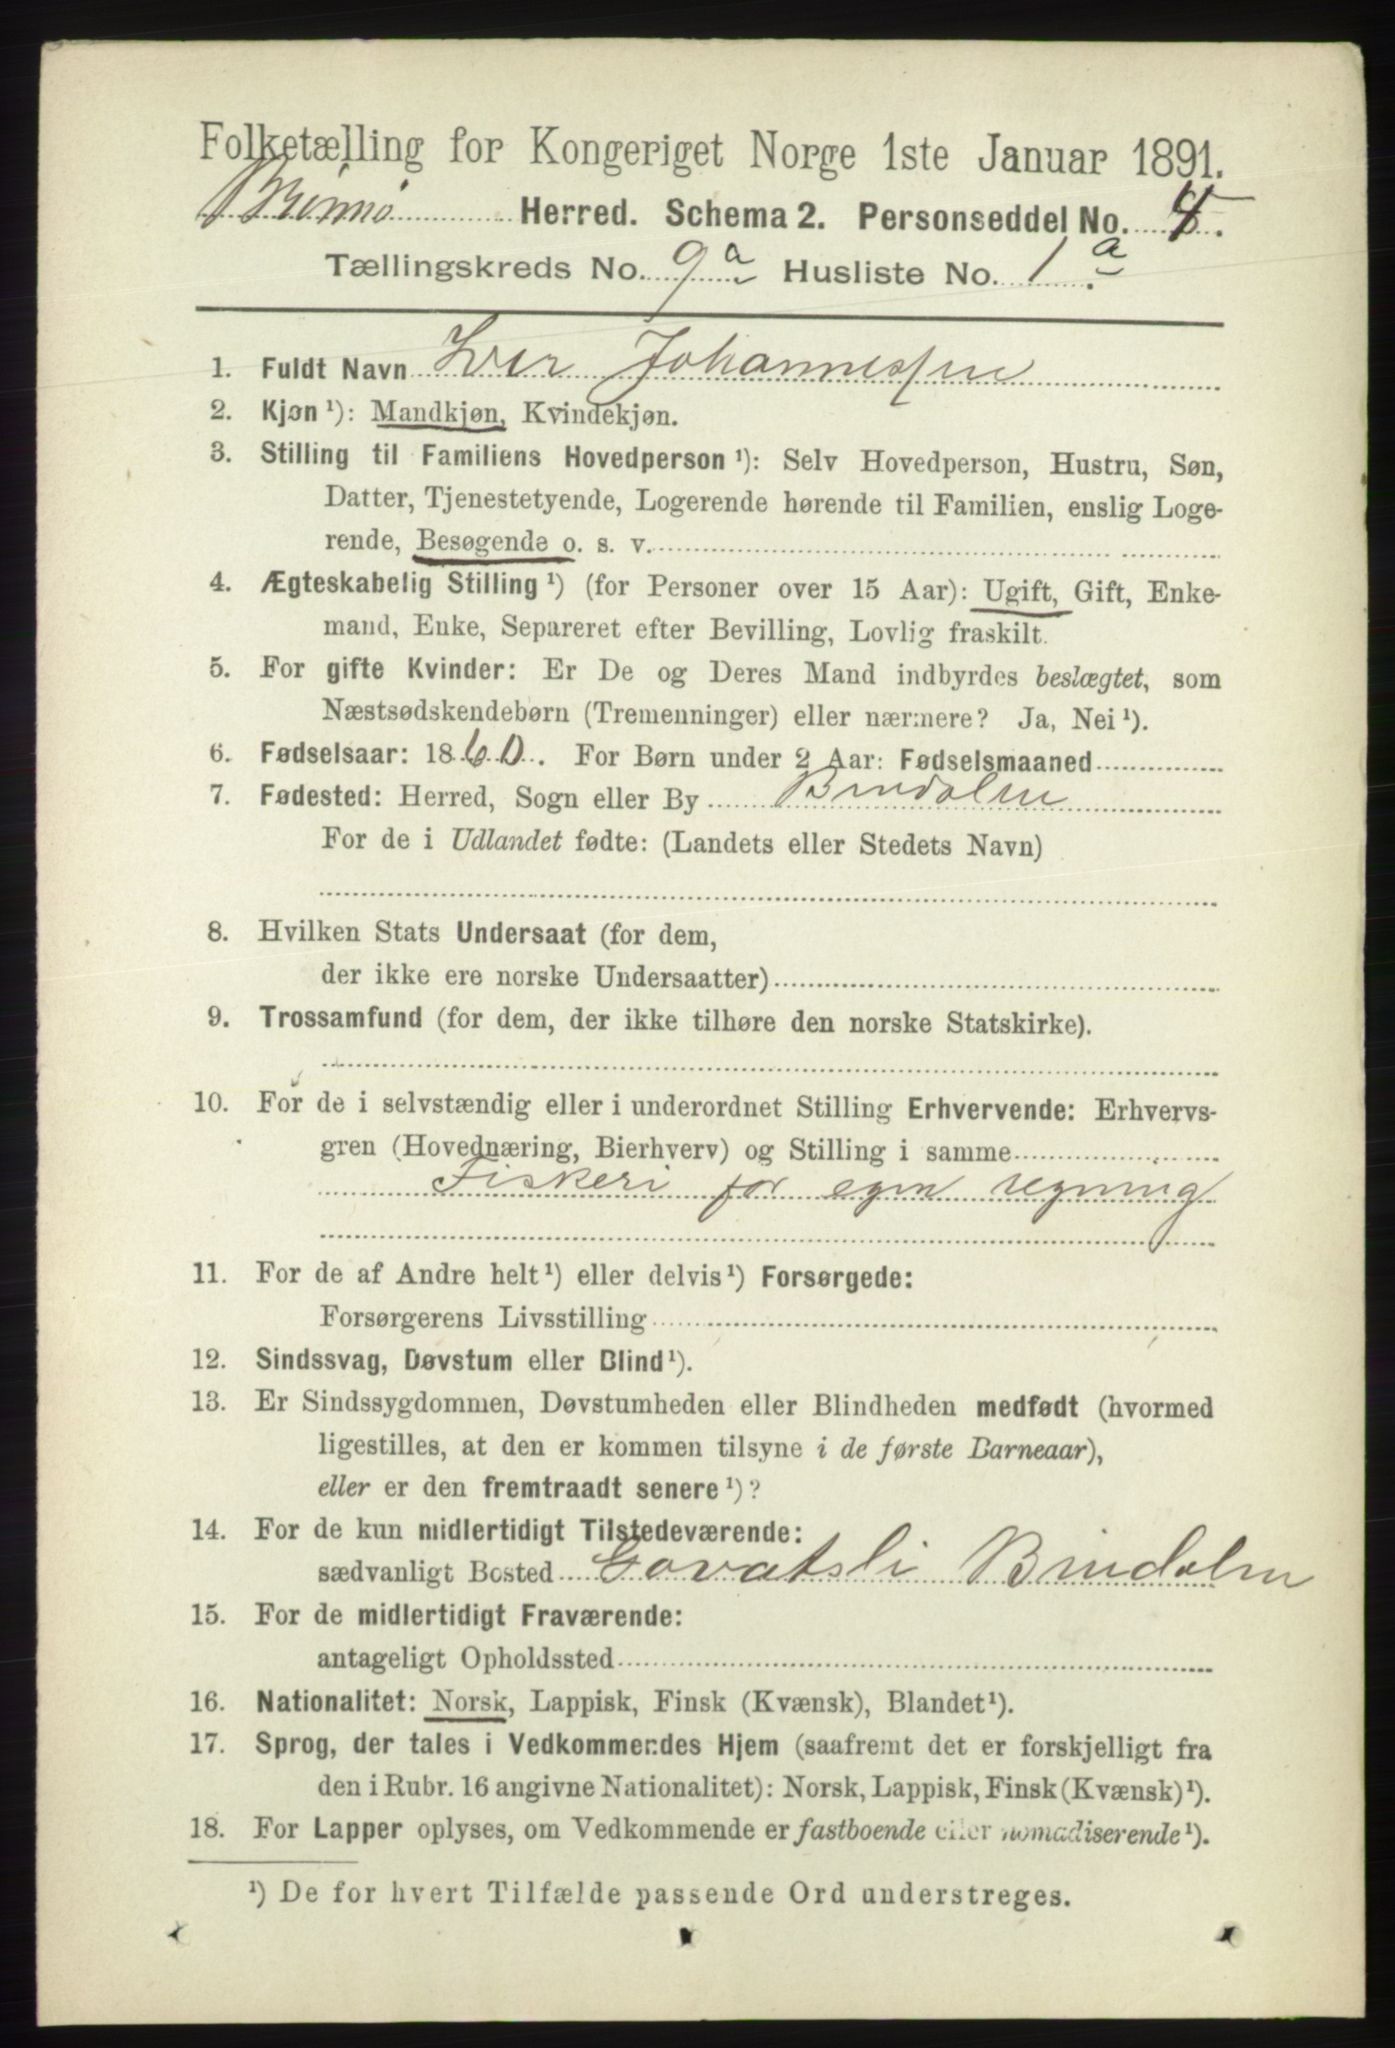 Folketælling for Kongeriget Norge 1ste Januar 1891.
Brønnø Herred. Schema 2. Personseddel No. 4.
Tællingskreds No. 9 a Husliste No. 1 a.
1. Fuldt Navn Iver Johannessen
2. Kjøn ¹): Mandkjøn, Kvindekjøn.
3. Stilling til Familiens Hovedperson ¹): Selv Hovedperson, Hustru, Søn,
Datter, Tjenestetyende, Logerende hørende til Familien, enslig Loge-
rende, Besøgende o. s. v.
4. Ægteskabelig Stilling ¹) (for Personer over 15 Aar): Ugift, Gift, Enke-
mand, Enke, Separeret efter Bevilling, Lovlig fraskilt.
5. For gifte Kvinder: Er De og Deres Mand indbyrdes beslægtet, som
Næstsødskendebørn (Tremenninger) eller nærmere? Ja, Nei ¹).
6. Fødselsaar: 1860. For Børn under 2 Aar: Fødselsmaaned
7. Fødested: Herred, Sogn eller By Bindalen
For de i Udlandet fødte: (Landets eller Stedets Navn)
8. Hvilken Stats Undersaat (for dem,
der ikke ere norske Undersaatter)
9. Trossamfund (for dem, der ikke tilhøre den norske Statskirke).
10. For de i selvstændig eller i underordnet Stilling Erhvervende: Erhvervs-
gren (Hovednæring, Bierhverv) og Stilling i samme
Fiskeri for egen regning
11. For de af Andre helt ¹) eller delvis ¹) Forsørgede:
Forsørgerens Livsstilling
12. Sindssvag, Døvstum eller Blind ¹).
13. Er Sindssygdommen, Døvstumheden eller Blindheden medfødt (hvormed
ligestilles, at den er kommen tilsyne i de første Barneaar),
eller er den fremtraadt senere ¹)?
14. For de kun midlertidigt Tilstedeværende:
sædvanligt Bosted Govatsli Bindalen
15. For de midlertidigt Fraværende:
antageligt Opholdssted
16. Nationalitet: Norsk, Lappisk, Finsk (Kvænsk), Blandet ¹).
17. Sprog, der tales i Vedkommendes Hjem (saafremt det er forskjelligt fra
den i Rubr. 16 angivne Nationalitet): Norsk, Lappisk, Finsk (Kvænsk) ¹).
18. For Lapper oplyses, om Vedkommende er fastboende eller nomadiserende ¹).
¹) De for hvert Tilfælde passende Ord understreges.